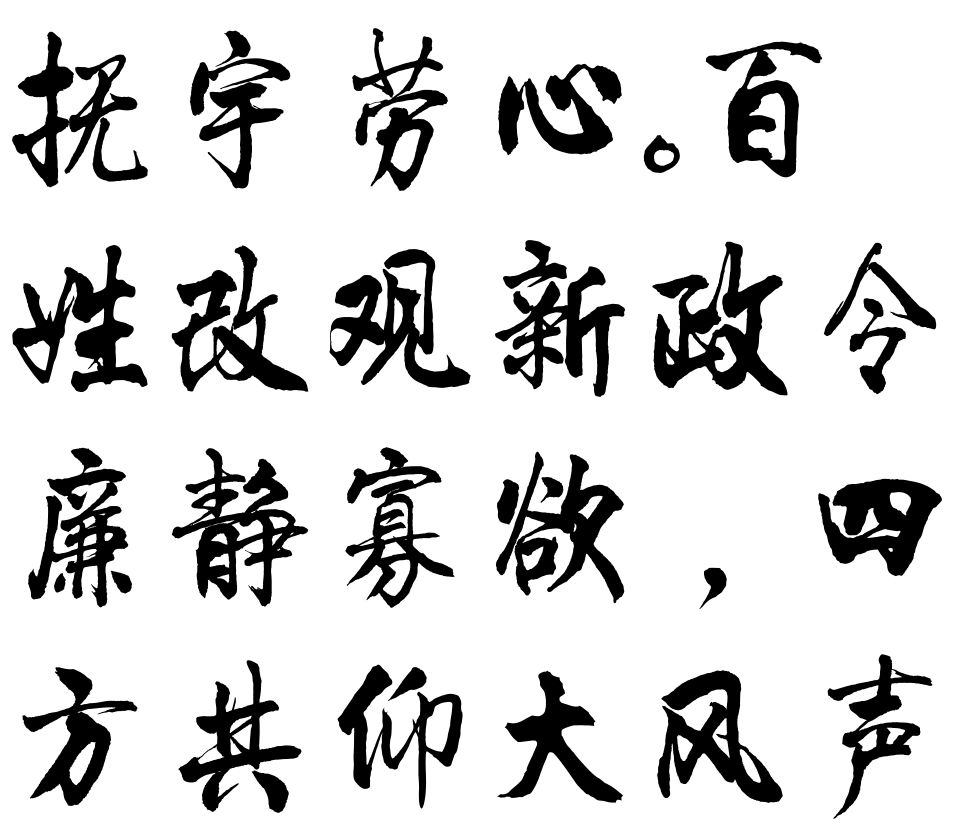 抚宇劳心。百
姓改观新政令
廉静寡欲，四
方共仰大风声